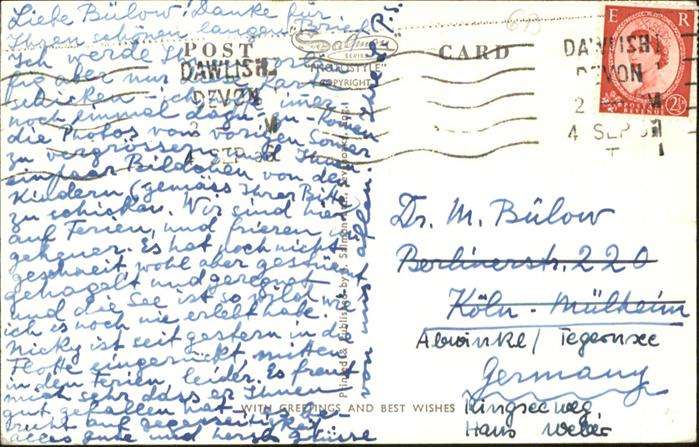 Liebe Bülow! Danke für
Ihren schönen langen Brief.
Ich werde Ihnen
für aber nur
schicken - ich
noch einmal dazu zu kommen
die Photos vom vorigen Sommer
zu vergrössern und Ihnen
ein paar Bildchen von den
Kindern (gemäss Ihrer Bitte)
zu schicken. Wir sind hier
auf Ferien, und frieren
geheuer. Es hat noch nicht
geschneit, wohl aber
gehagelt und geregnet
und die See ist so wie
ich es noch nie erlebt habe.
Nicky ist seit gestern in d.
Flotte eingerückt mitten
in den Ferien leider. Es freut
mich sehr dass er Ihnen
gut gefallen hat
auf gegenseitigkeit
alles gute und herzl. Grüsse
von uns allen. Ihre
P.S.
POST CARD
Salmon
SERIES
COPYRIGHT
Printed & Published by J. Salmon Ltd., Sevenoaks, England
DAWLISH
DEVON
4 SEP
DAWLISH
DEVON
2 M
4 SEP
E R
2½
Dr. M. Bülow
Berlinerstr. 220
Köln-Mülheim
Abwinkl/Tegernsee
Germany
Ringseeweg
Haus Weber
WITH GREETINGS AND BEST WISHES